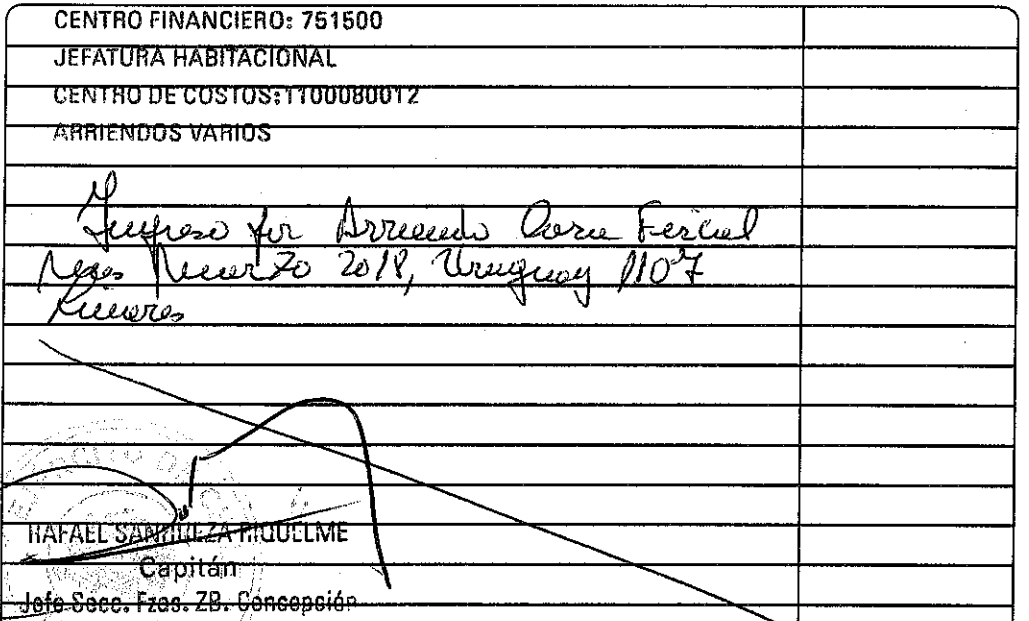 CENTRO FINANCIERO: 751500
JEFATURA HABITACIONAL
CENTRO DE COSTOS: 1100080012
ARRIENDOS VARIOS
Ingreso por Arriendo Casa Fiscal
Mes Marzo 2018, Uruguay
Linares
RAFAEL SANHUEZA RIQUELME
Capitán
Jefe Secc. Fzas. ZB. Concepción